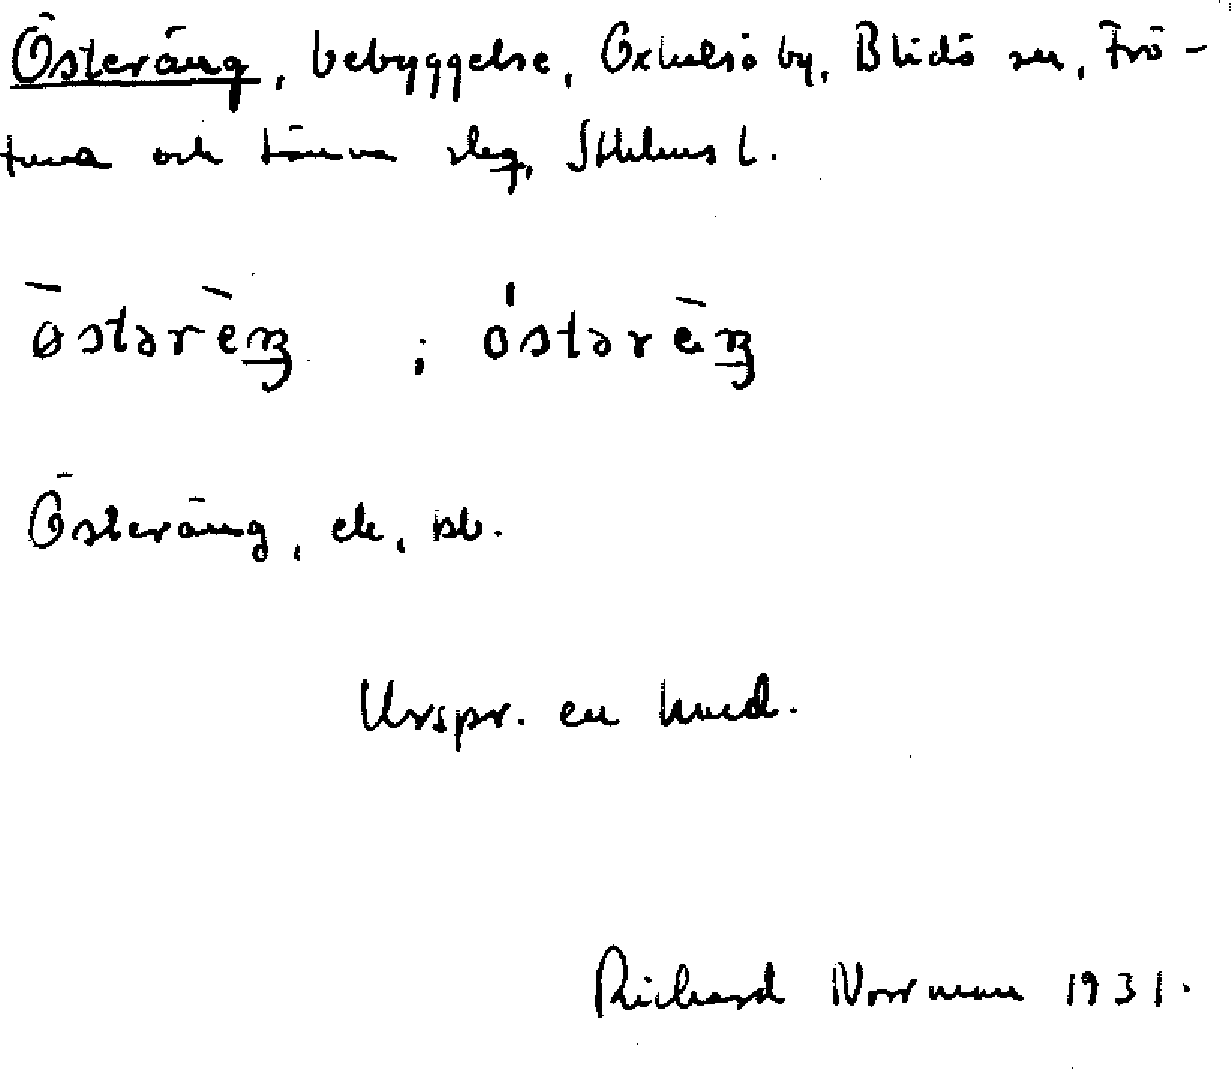 Österäng, bebyggelse, Oxhalsö by, Blidö sn, Frö-
tuna och Länna slg, Sthlms l.
östərèŋ ; östərèŋ
Österäng, ek, bl.
Urspr. en
Richard Norrman 1931.